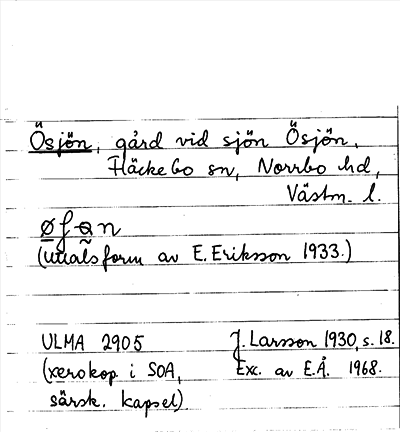 Ösjön, gård vid sjön Ösjön,
Fläckebo sn, Norrbo hd,
Västm. l.
(uttalsform av E. Eriksson 1933.)
ULMA 2905
(xerokop. i SOA,
särsk. kapsel)
J. Larsson 1930, s. 18.
Exc. av E.Å. 1968.